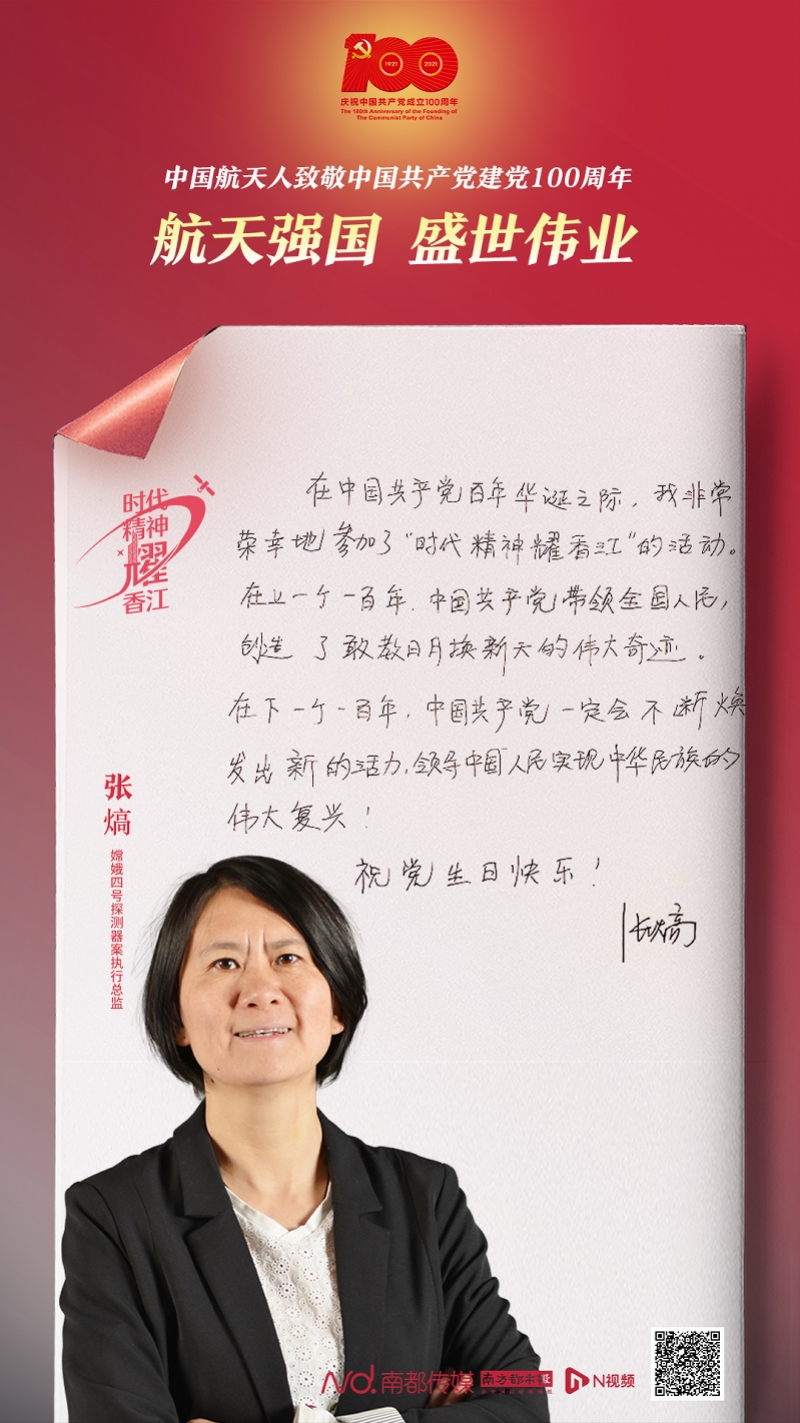 100
1921
2021
庆祝中国共产党成立100周年
The 100th Anniversary of the Founding of
The Communist Party of China
中国航天人致敬中国共产党建党100周年
航天强国 盛世伟业
时代
精神
耀
香江
在中国共产党百年华诞之际，我非常
荣幸地参加了“时代精神耀香江”的活动。
在上一个一百年，中国共产党带领全国人民，
创造了敢教日月换新天的伟大奇迹。
在下一个一百年，中国共产党一定会不断焕
发出新的活力，领导中国人民实现中华民族的
伟大复兴！
祝党生日快乐！
张熇
张熇
嫦娥四号探测器案执行总监
Nd.南都传媒
南方都市报
N视频